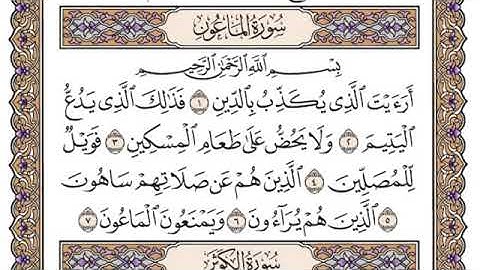 سُورَةُ المَاعُونِ
بِسْمِ اللَّهِ الرَّحْمَٰنِ الرَّحِيمِ
أَرَءَيْتَ الَّذِي يُكَذِّبُ بِالدِّينِ ١ فَذَٰلِكَ الَّذِي يَدُعُّ
الْيَتِيمَ ٢ وَلَا يَحُضُّ عَلَىٰ طَعَامِ الْمِسْكِينِ ٣ فَوَيْلٌ
لِّلْمُصَلِّينَ ٤ الَّذِينَ هُمْ عَن صَلَاتِهِمْ سَاهُونَ
٥ الَّذِينَ هُمْ يُرَاءُونَ ٦ وَيَمْنَعُونَ الْمَاعُونَ ٧
سُورَةُ الكَوْثَرِ